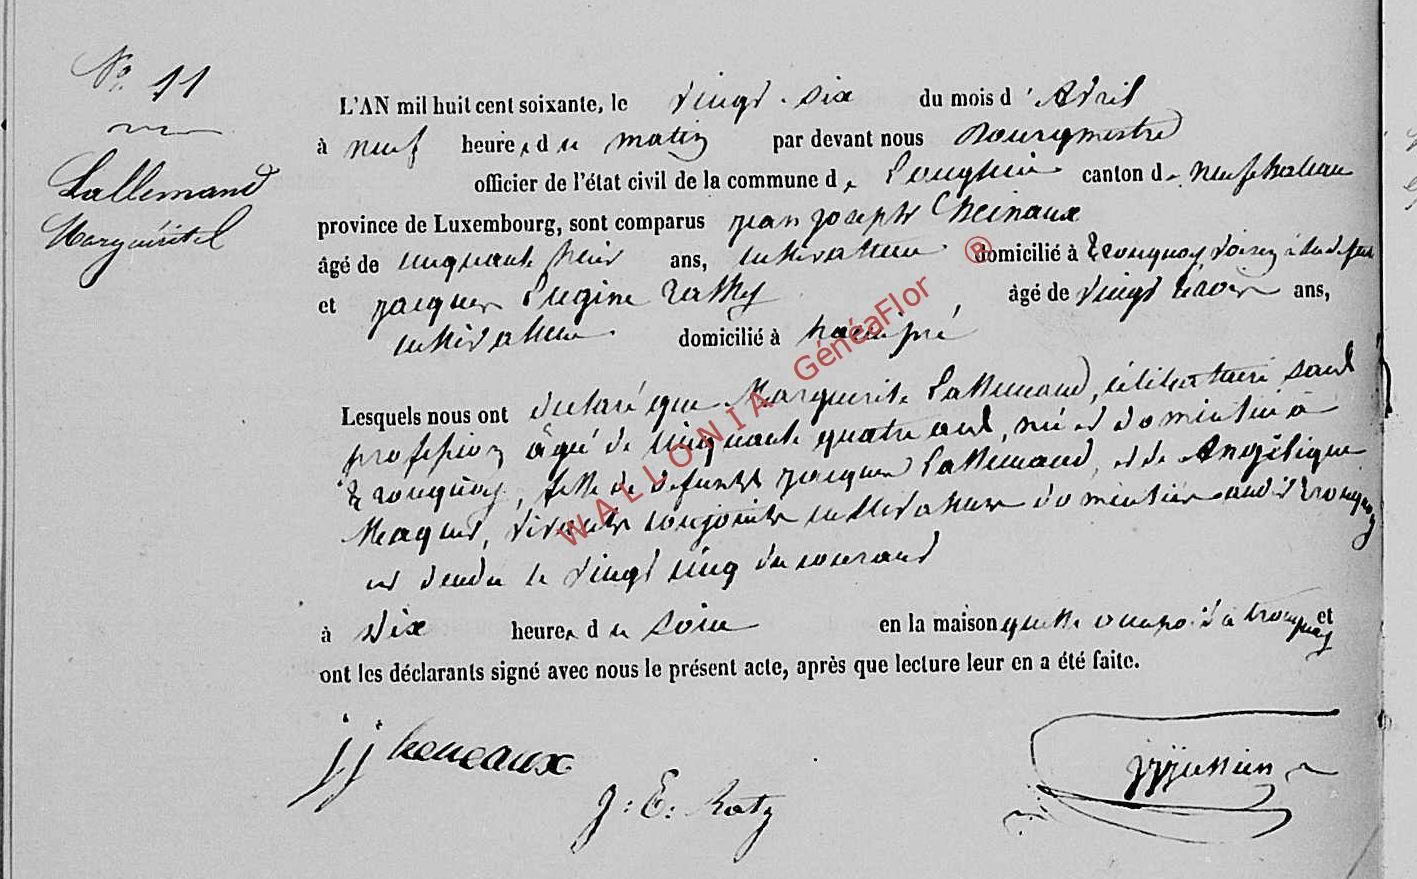 No. 11
Lallemand
Marguérite
L'AN mil huit cent soixante, le vingt-six du mois d'Avril
à neuf heures du matin par devant nous Bourgmestre
officier de l'état civil de la commune de Longlier canton de Neufchateau
province de Luxembourg, sont comparus jean joseph Cheinaux
âgé de cinquante huit ans, cultivateur domicilié à tronquoy, voisin à la défunte
et jacques Eugène âgé de vingt trois ans,
cultivateur domicilié à hamipré
Lesquels nous ont declaré que Marguerite Lallemand, célibataire sans
profession agé de cinquante quatre ans, né et domicilié à
tronquoy, fille de defunts jacques Lallemand, et de Angélique
Maquet, vivants conjoints cultivateurs domiciliés audit tronquoy
est dendu le vingt cinq du courant
à dix heures du soir en la maison quelle occupoit à tronquoy et
ont les déclarants signé avec nous le présent acte, après que lecture leur en a été faite.
jj heneaux
J. E. Raty
WALLONIA GénéaFlor ®